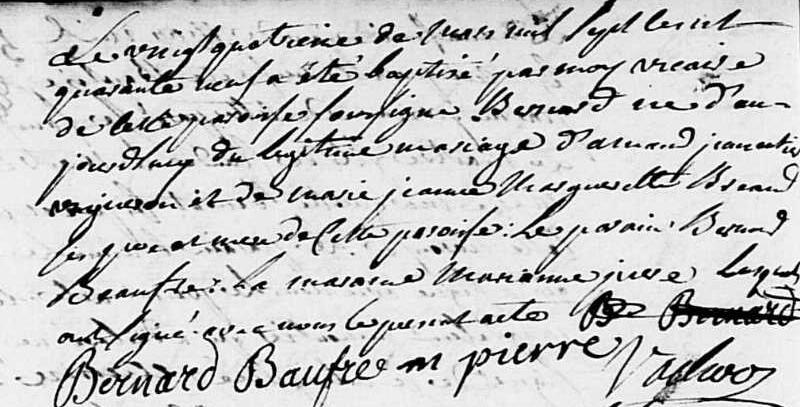 Le vingt quatrieme de mars mil sept cent
quarante neuf a été baptisé par moy vicaire
de cette paroisse soussigné Bernard né d'au-
jourdhuy du legitime mariage d'amand
vigneron et de marie jeanne
ses pere et mere de Cette paroisse. Le parain Bernard
Beaufre. La maraine Marianne pierre Lesquels
ont signé avec nous le present acte B Bernard
Bernard Baufre m pierre